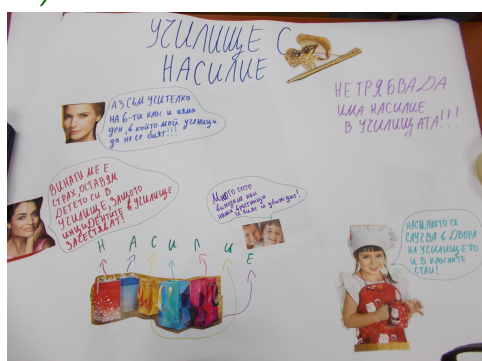 УЧИЛИЩЕ С
НАСИЛИЕ
НЕ ТРЯБВА ДА
ИМА НАСИЛИЕ
В УЧИЛИЩАТА!!!
АЗ СЪМ УЧИТЕЛКА
НА 6-ТИ КЛАС И НЯМА
ДЕН, В КОЙТО МОЙ УЧЕНИЦИ
ДА НЕ СЕ БИЯТ!!!
ВИНАГИ МЕ Е
СТРАХ, ОСТАВЯМ
ДЕТЕТО СИ В
УЧИЛИЩЕ, ЗАЩОТО
ИНЦИДЕНТИТЕ В УЧИЛИЩЕ
ЗАЧЕСТЯВАТ!
МНОГО ЧЕСТО
ВИЖДАМЕ КАК
НАШИ ВРЪСТНИЦИ
СЕ БИЯТ И
НАСИЛИЕТО СЕ
СЛУЧВА В ДВОРА
НА УЧИЛИЩЕТО
И В КЛАСНИТЕ
СТАИ!
НАСИЛИЕ